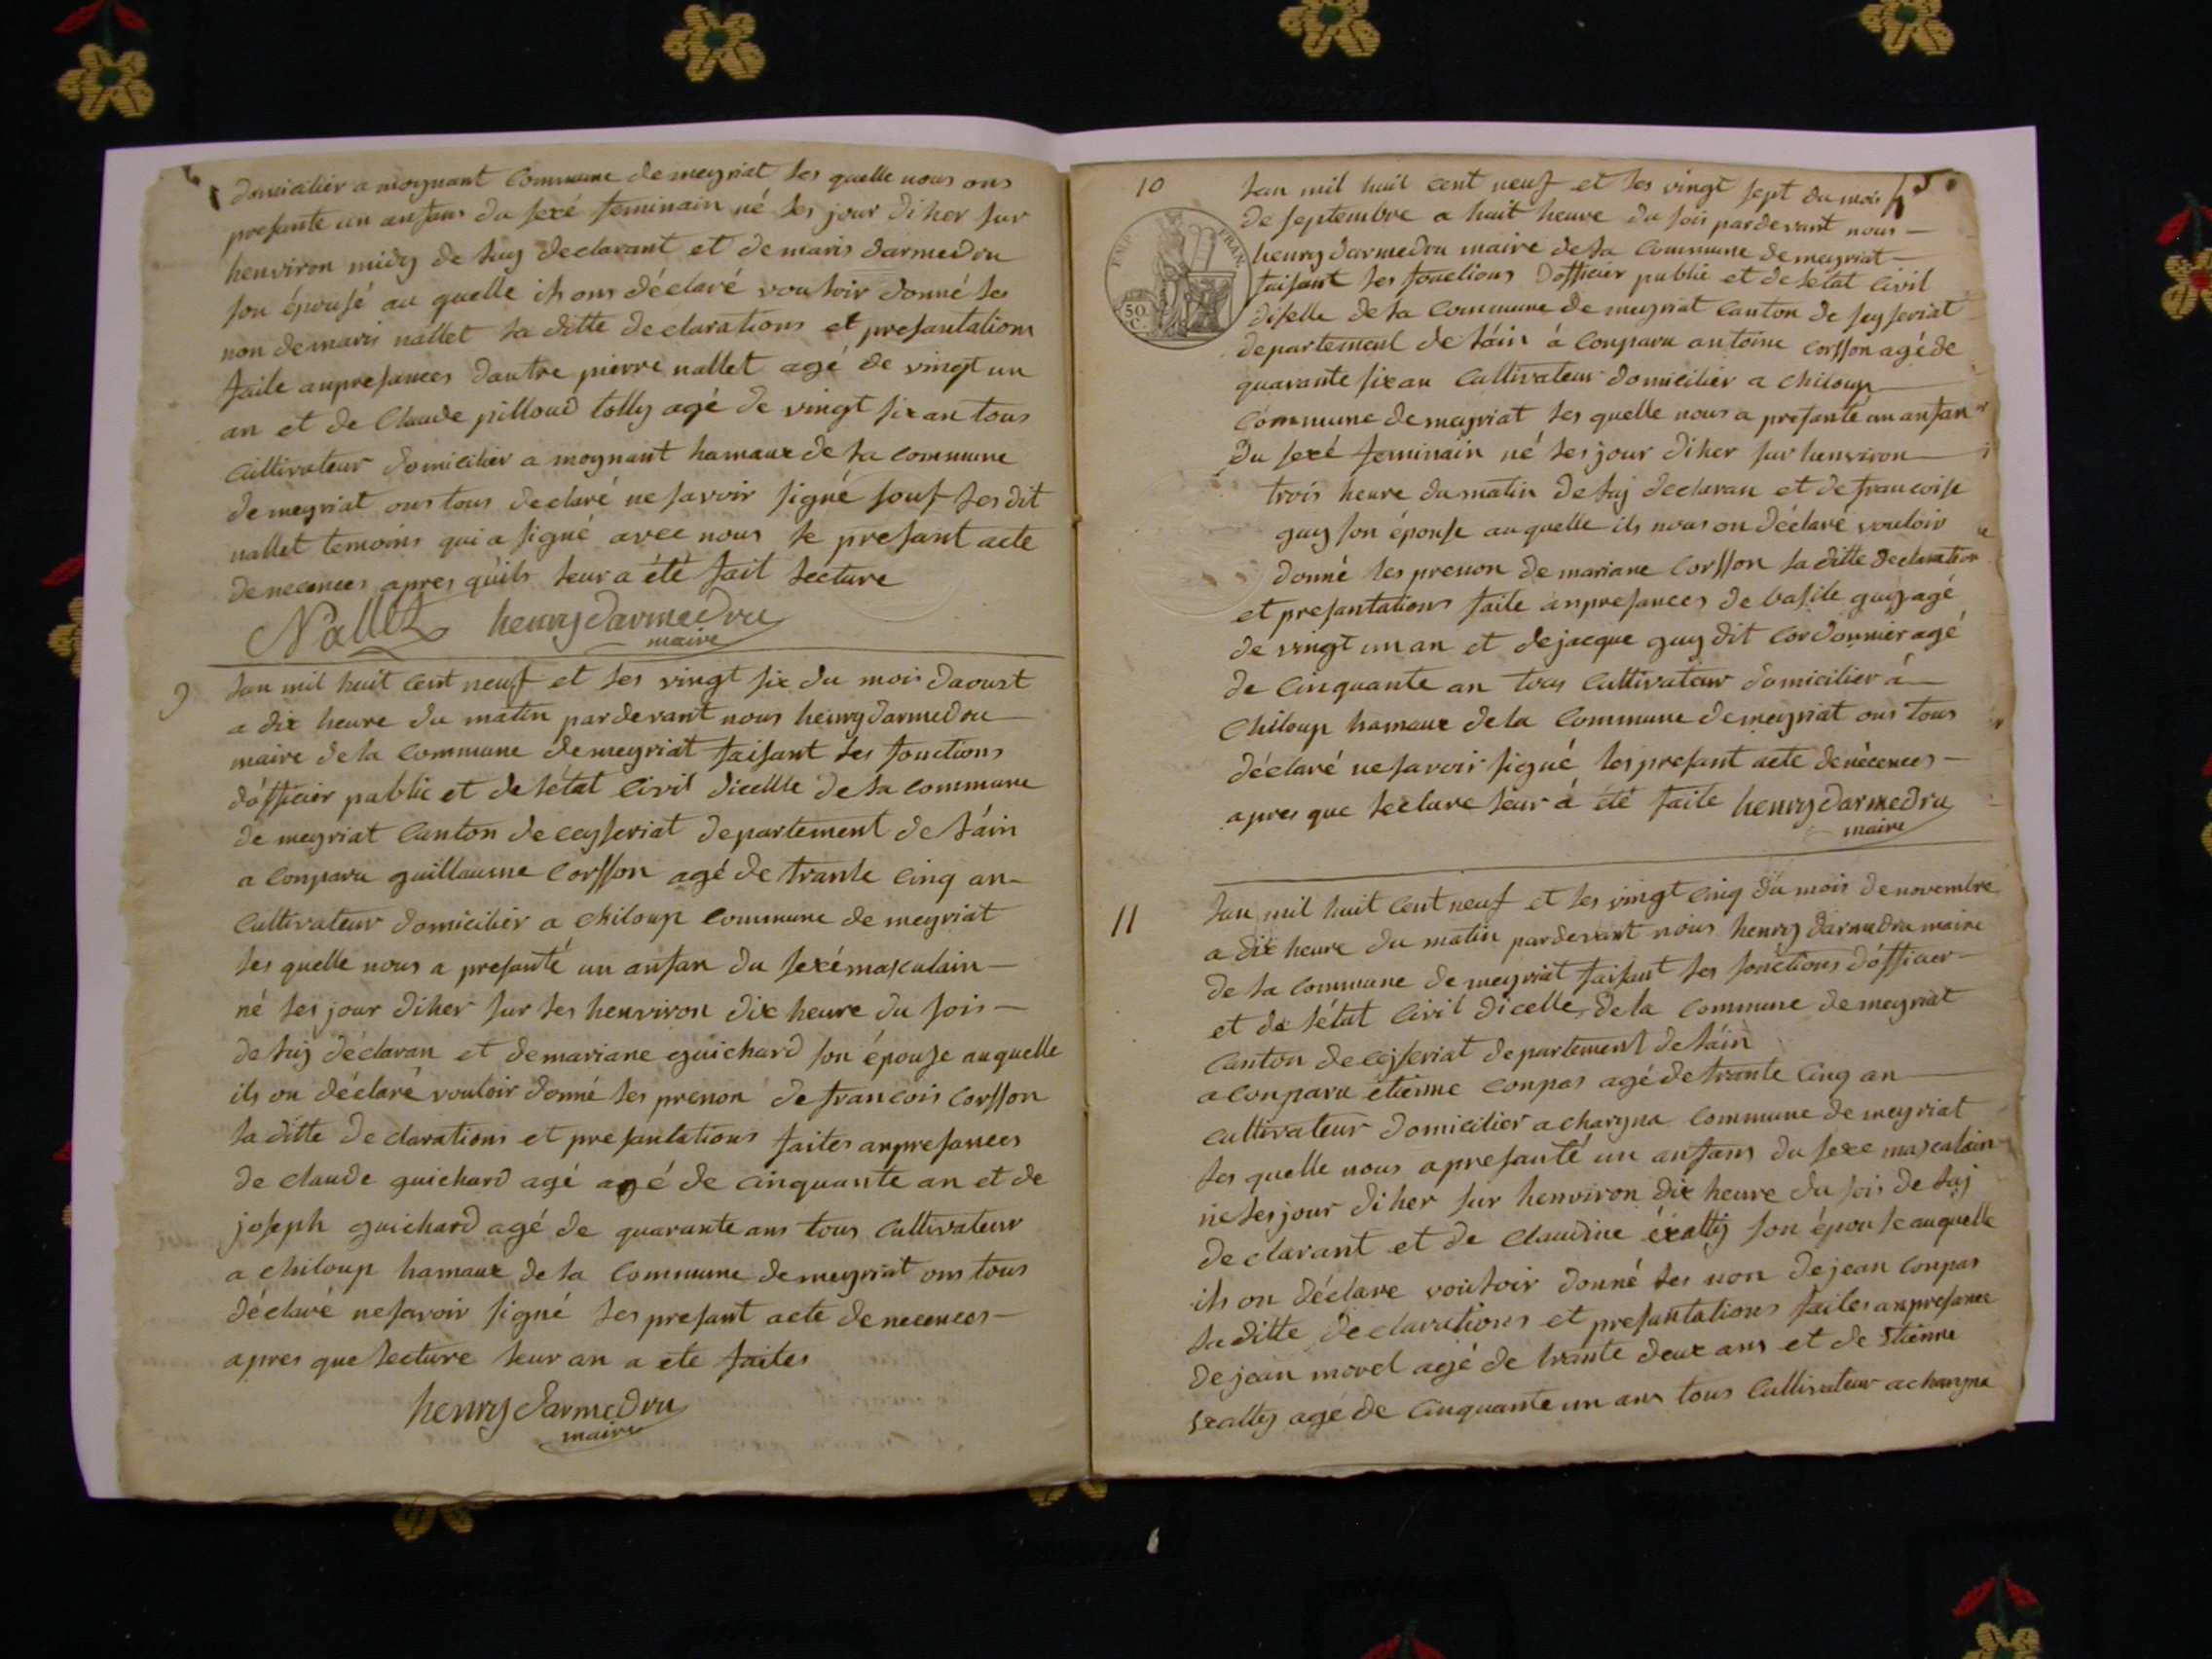 domicilier a moynant Commune de meyriat les quelle nous ons
presante un anfans du sexé feminain né les jour diher sur
henviron midy de luy declarant et de maris darmedru
son épousé au quelle ils ons déclaré vouloir donné les
non de maris nallet la ditte declarations et presantations
faite anpresances dautre pierre nallet agé de vingt un
an et de Claude pilloud tolly agé de vingt six an tous
Cultivateur domicilier a moynant hamaux de la commune
de meyriat ons tous declaré ne savoir signé souf les dit
nallet temoins qui a signé avec nous le presant acte
de necences apres quils leur a été fait lecture
Nallet henry darmedru
maire
9 lan mil huit cent neuf et les vingt six du mois daoust
a dix heure du matin pardevant nous henry darmedru
maire de la commune de meyriat faisant les fonctions
dófficier public et de létat Civil dicellle de la commune
de meyriat Canton de ceyseriat departement de láin
a Conparu guillaume Corsson agé de trante cinq an
Cultivateur domicilier a chiloup commune de meyriat
les quelle nous a presanté un anfan du sexé masculain
né les jour diher sur les henviron dix heure du soir
de luy déclaran et de mariane guichard son épouse auquelle
ils on déclaré vouloir donné les prenon de francois Corsson
la ditte declarations et presantations faites anpresances
de claude guichard agé agé de cinquante an et de
joseph guichard agé de quarante ans tous Cultivateur
a chiloup hamaux de la Commune de meyriat ons tous
déclaré ne savoir signé les presant acte de necences
apres que lecture leur an a eté faites
henry darmedru
maire
10 lan mil huit cent neuf et les vingt sept du mois
de septembre a huit heure du soir pardevant nous
EMP. FRAN.
50 C.
henry darmedru maire de la Commune de meyriat
faisant les fonctions dofficier public et de letat Civil
diselle de la Commune de meyriat Canton de seyseriat
departement de láin á Conparu antoine Corsson agé de
quarante six an Cultivateur domicilier a chiloup
Commune de meyriat les quelle nous a presanté un anfan
du sexé feminain né les jour diher sur henviron
trois heure du matin de luy declaran et de francoise
guy son épouse auquelle ils nous on déclaré vouloir
donné les prenon de mariane Corsson la ditte declaration
et presantations faite anpresances de basile guy agé
de vingt un an et de jacque guy dit Cordonnier agé
de Cinquante an tous Cultivateur domicilier á
Chiloup hamaux de la Commune de meyriat ons tous
déclaré ne savoir signé les presant acte de nécences
apres que lecture leur á été faite henry darmedru
maire
11 lan mil huit Cent neuf et les vingt Cinq du mois de novembre
a dix heure du matin pardevant nous henry darmedru maire
de la commune de meyriat faisant les fonctions dófficier
et de létat Civil dicelle de la Commune de meyriat
Canton de Cejseriat departement de láin
a Conparu etienne Conpas agé de trante Cinq an
cultivateur domicilier a charyna Commune de meyriat
les quelle nous a presanté un anfans du sexe masculain
ne les jour diher sur henviron dix heure du soir de luj
declarant et de Claudine éxally son épouse auquelle
ils on déclare vouloir donné les non de jean Conpas
la ditte declarations et presantations faites anpresance
de jean morel agé de trante deux ans et de Etienne
Exally agé de Cinquante un ans tous Cultivateur a charyna